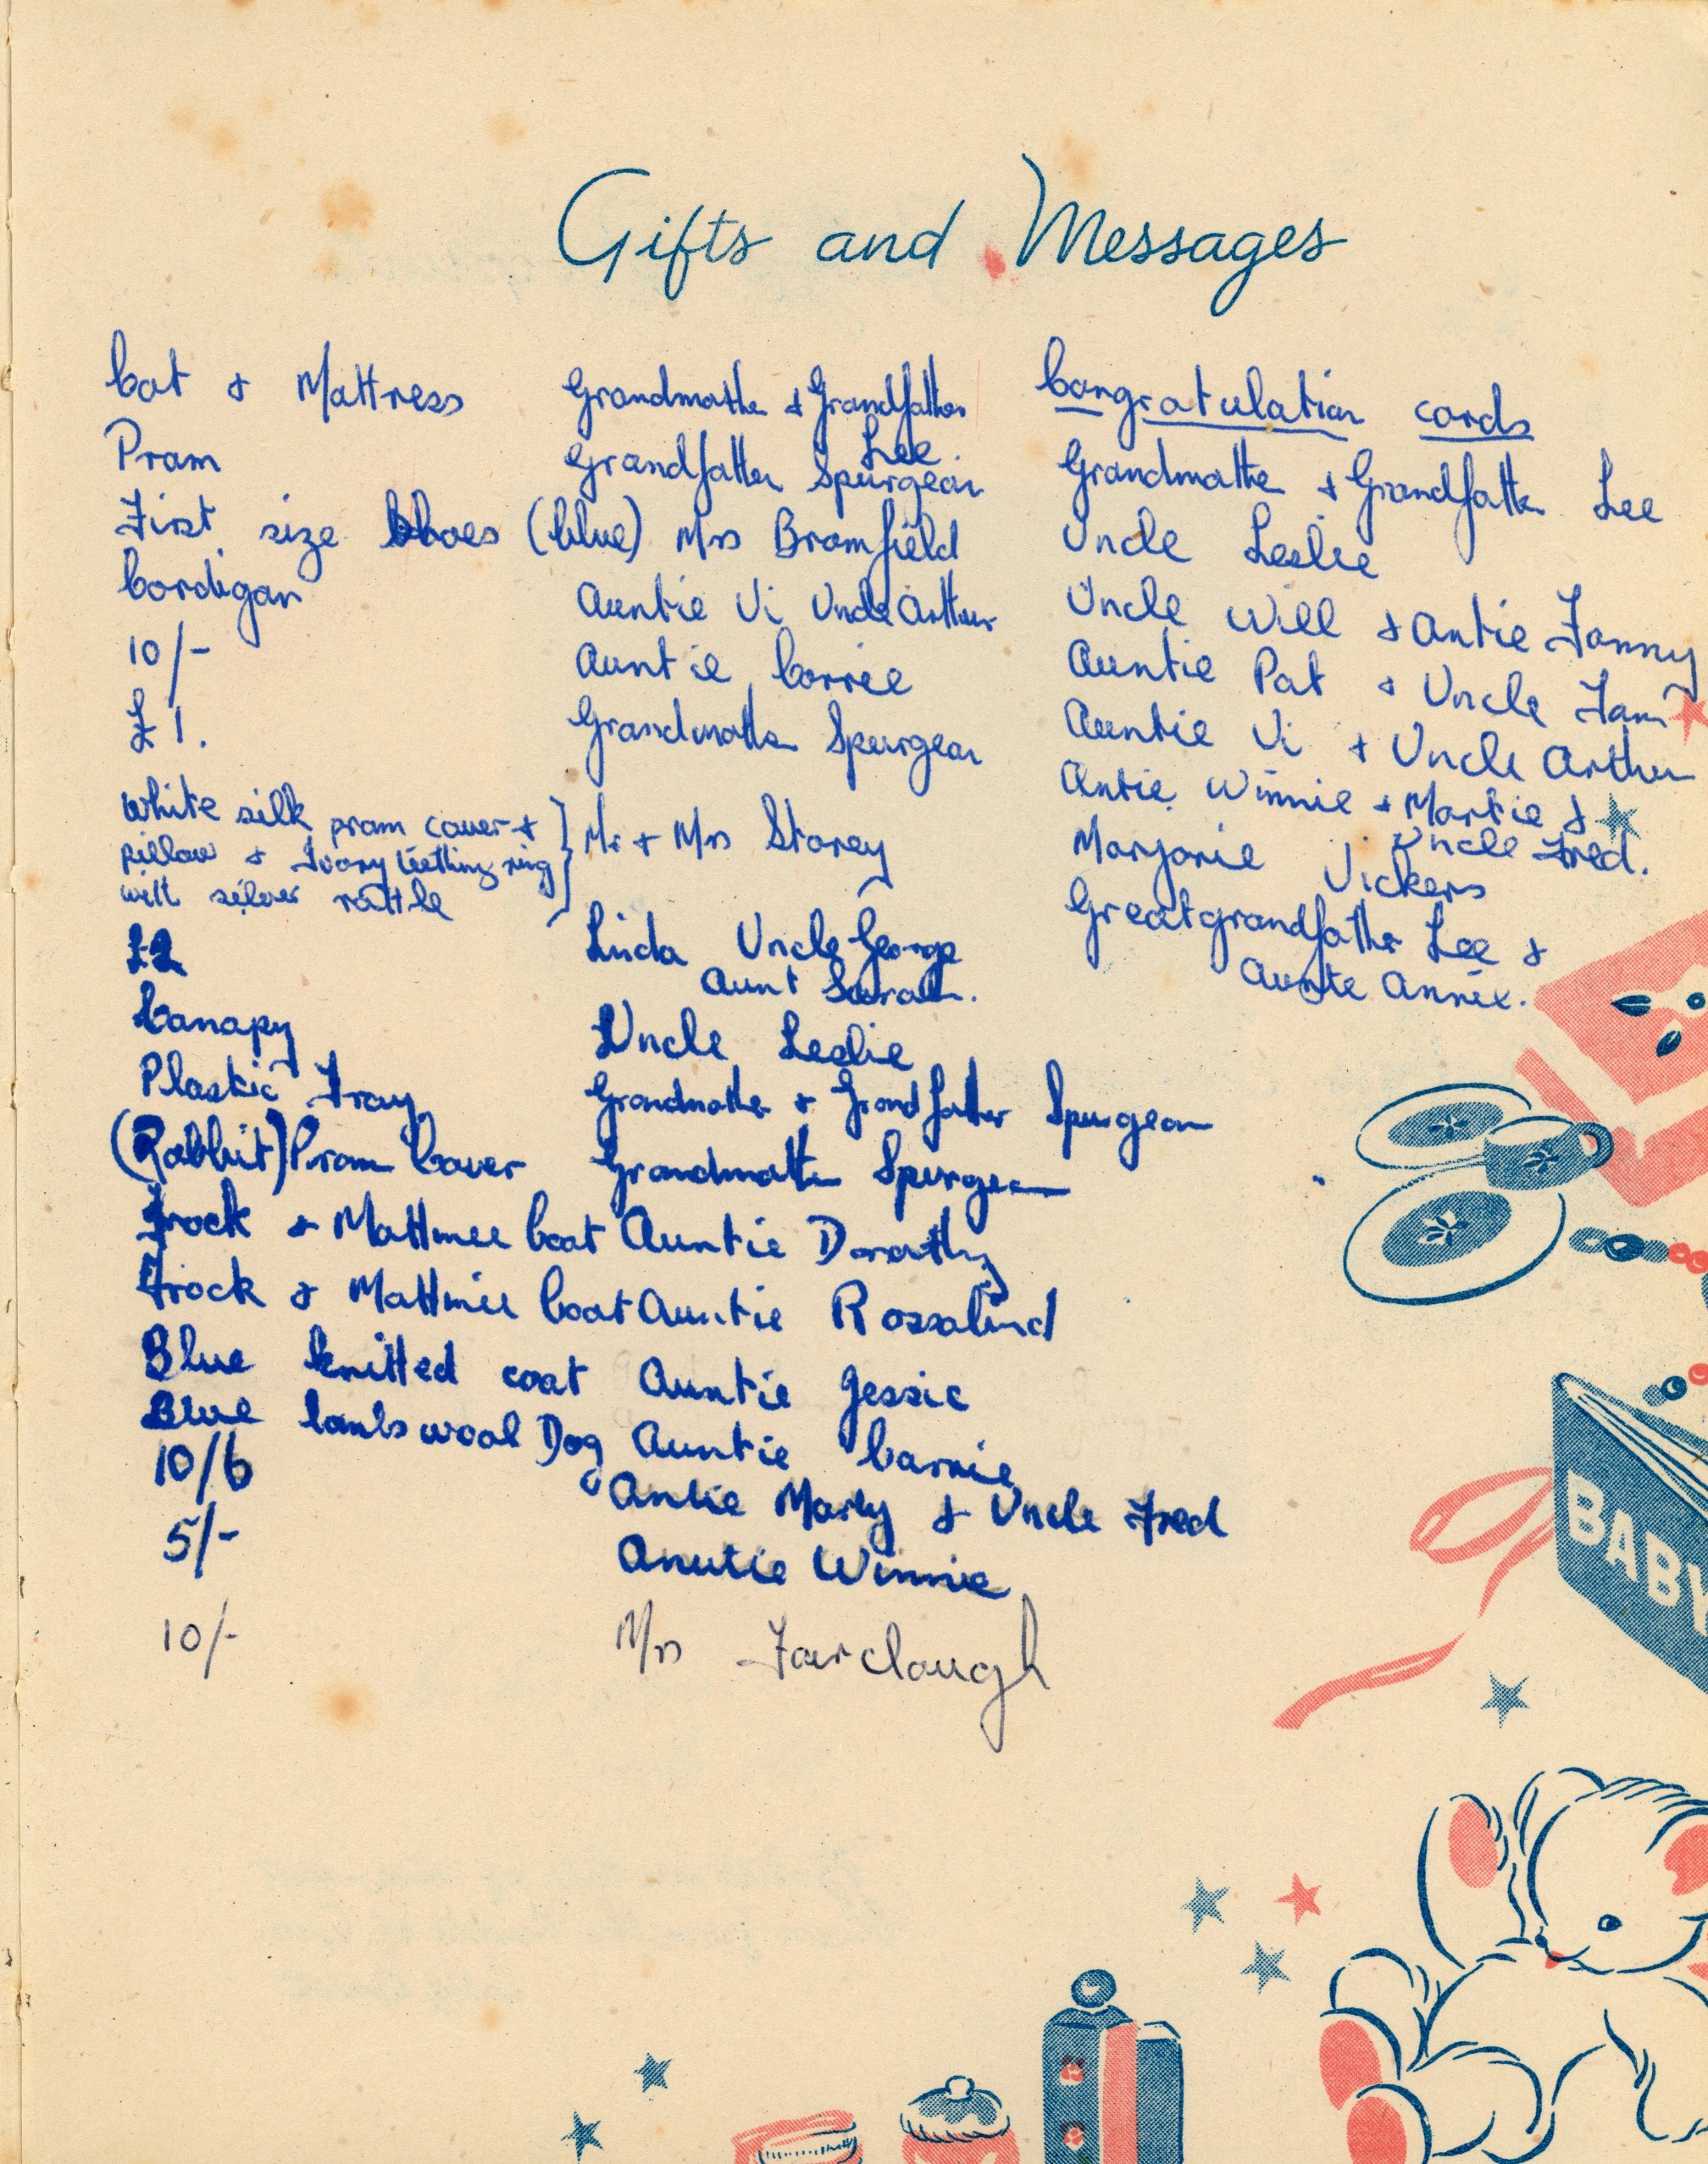 Gifts and Messages
Cot & Mattress Grandmother & Grandfather Lee
Pram Grandfather Spurgeon
First size Shoes (blue) Mrs Bromfield
Cardigan Auntie Vi Uncle Arthur
10/- Auntie Carrie
£1. Grandmother Spurgeon
White silk pram cover &
pillow & Ivory teething ring
with silver rattle
Mr & Mrs Storey
£2 Linda Uncle George
Aunt Sarah.
Canapy Uncle Leslie
Plastic Tray Grandmother & Grandfather Spurgeon
(Rabbit) Pram Cover Grandmother Spurgeon
Frock & Mattinee Coat Auntie Dorothy
Frock & Mattinee Coat Auntie Rossalind
Blue knitted coat Auntie Jessie
Blue lambs wool Dog Auntie Carrie
10/6 Antie Marly & Uncle Fred
5/- Anutie Winnie
10/- Mrs Fairclough
Congratulation cards
Grandmother & Grandfather Lee
Uncle Leslie
Uncle Will & Antie Fanny
Auntie Pat & Uncle
Auntie Vi & Uncle Arthur
Antie Winnie & Martie &
Uncle Fred.
Marjorie Vickers
Greatgrandfather Lee &
Aunte Annie.
BABY